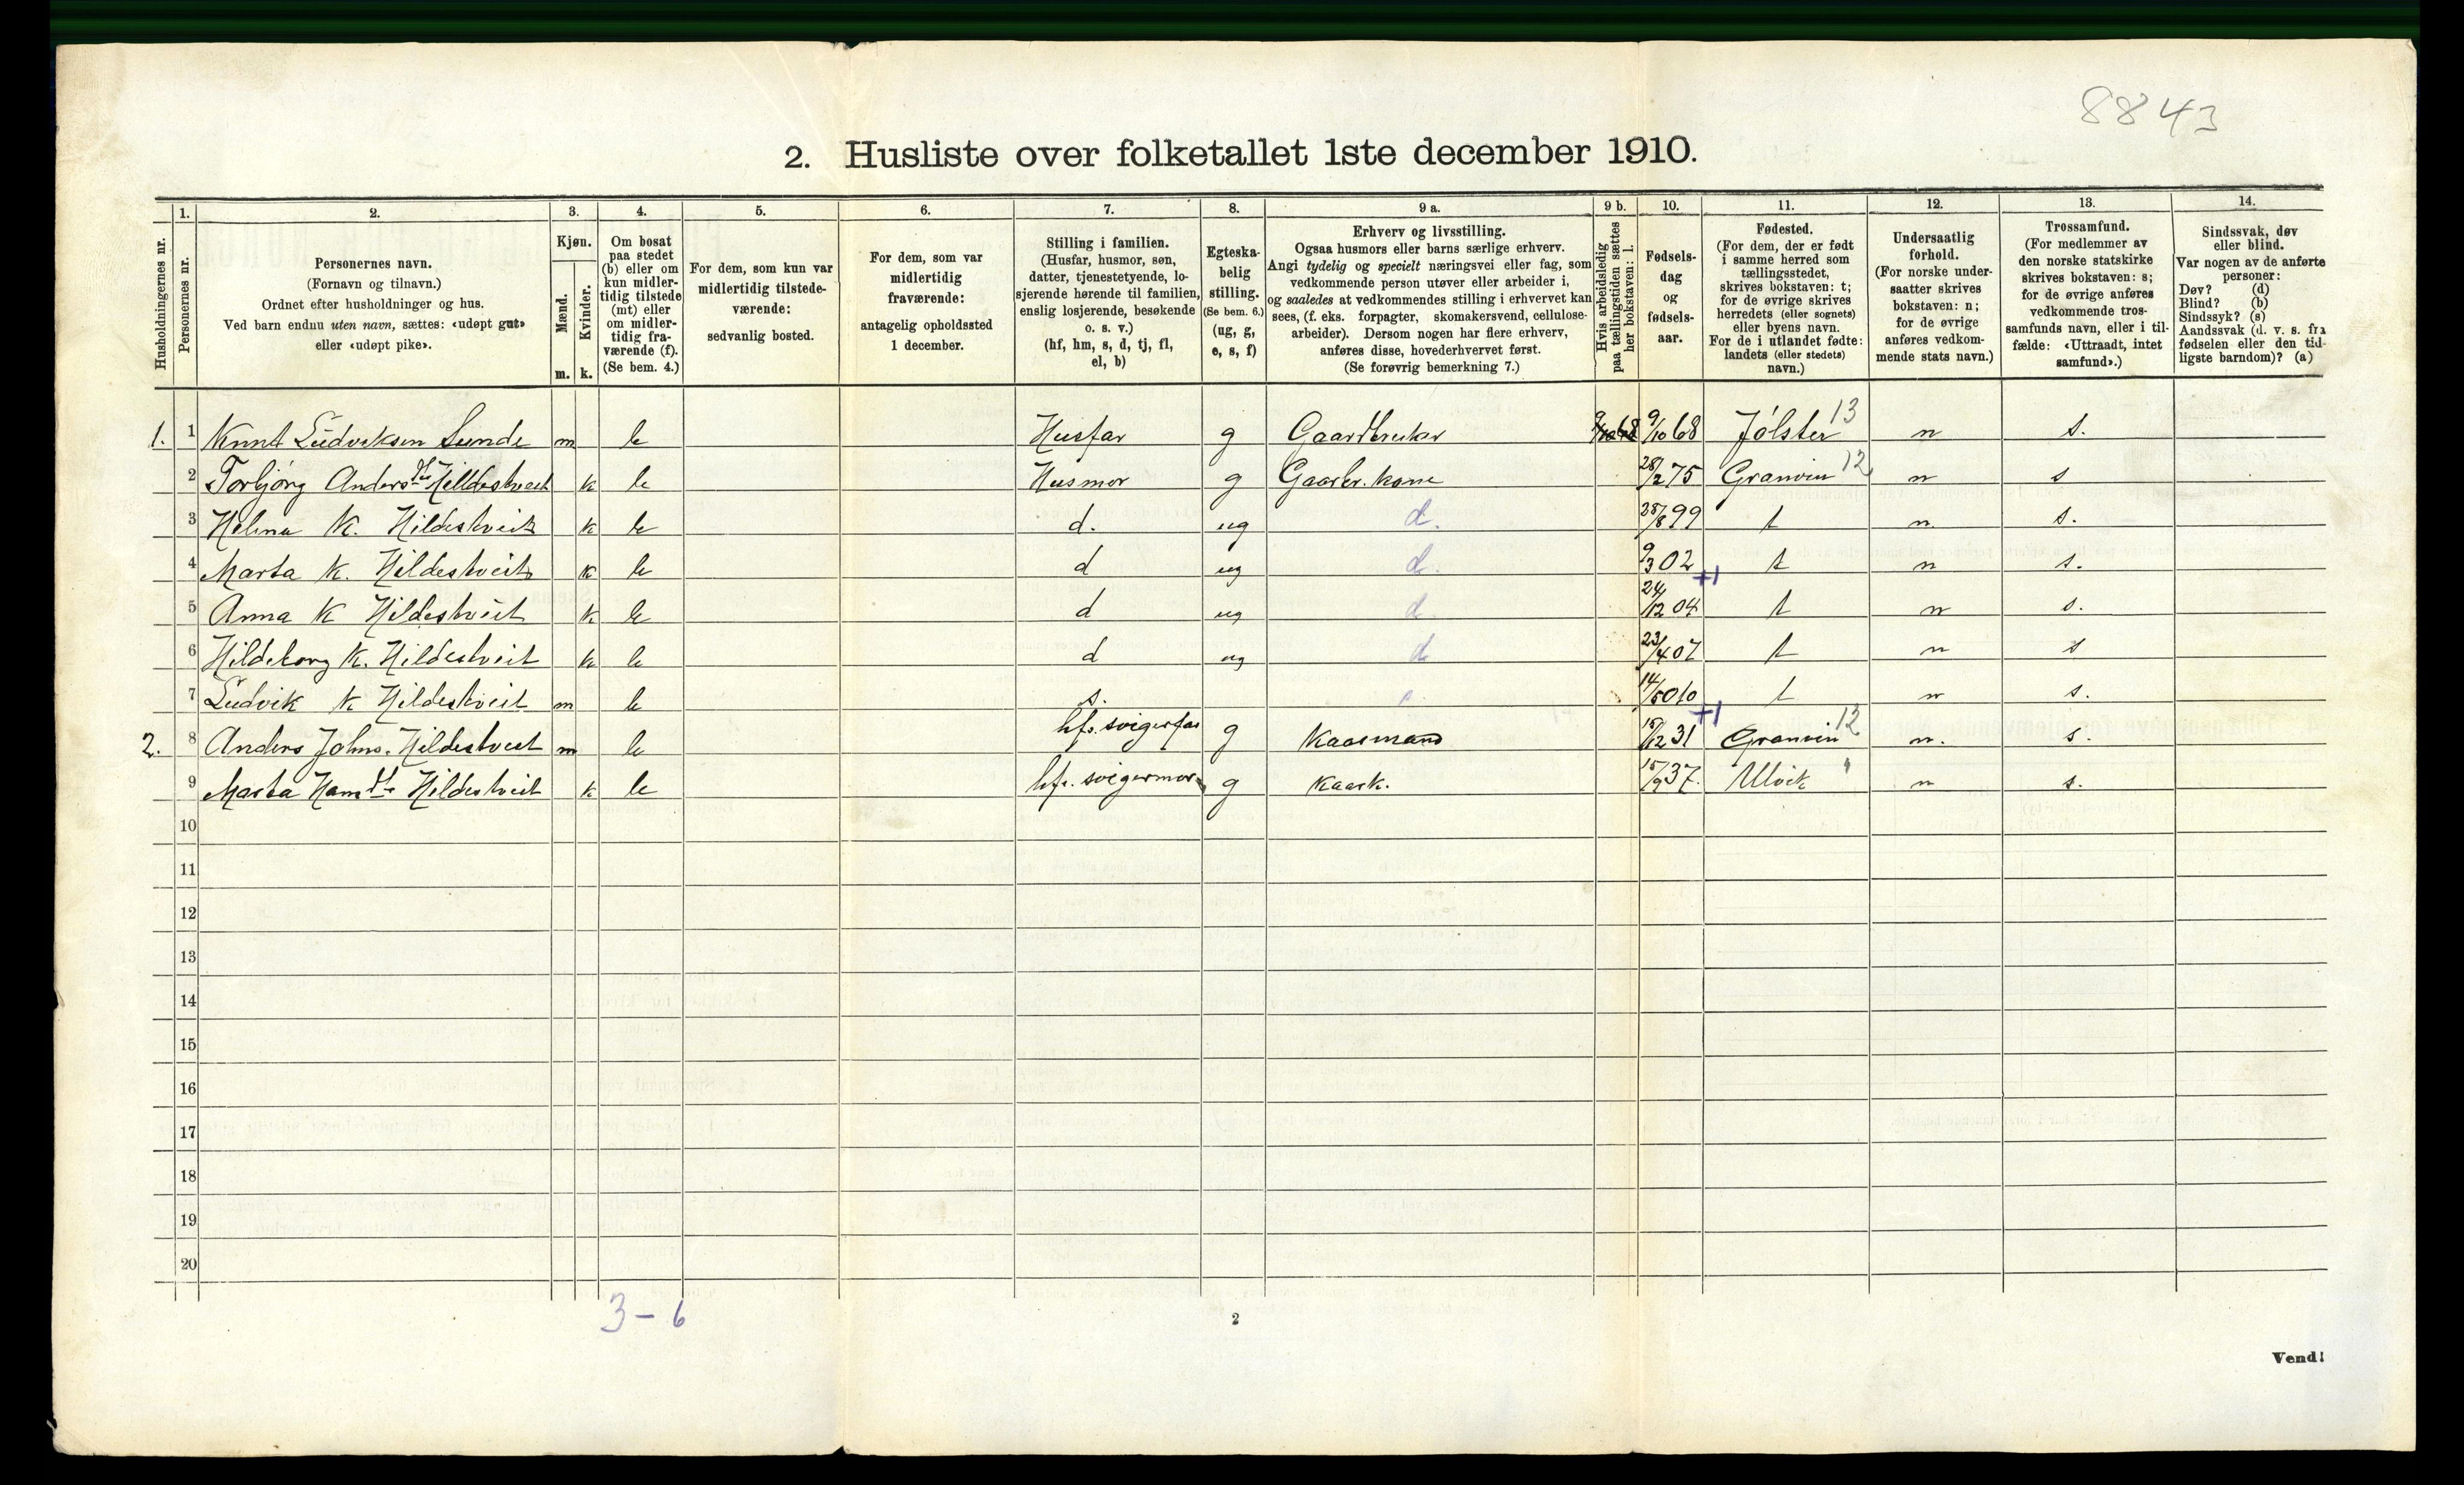 8843
2. Husliste over folketallet 1ste december 1910.
Husholdningernes nr.
1.
Personernes nr.
2.
Personernes navn.
(Fornavn og tilnavn.)
Ordnet efter husholdninger og hus.
Ved barn endnu uten navn, sættes: «udøpt gut»
eller «udøpt pike».
3.
Kjøn.
Mænd.
Kvinder.
m. k.
4.
Om bosat
paa stedet
(b) eller om
kun midler-
tidig tilstede
(mt) eller
om midler-
tidig fra-
værende (f).
(Se bem. 4.)
5.
For dem, som kun var
midlertidig tilstede-
værende:
sedvanlig bosted.
6.
For dem, som var
midlertidig
fraværende:
antagelig opholdssted
1 december.
7.
Stilling i familien.
(Husfar, husmor, søn,
datter, tjenestetyende, lo-
sjerende hørende til familien,
enslig losjerende, besøkende
o. s. v.)
(hf, hm, s, d, tj, fl,
el, b)
8.
Egteska-
belig
stilling.
(Se bem. 6.)
(ug, g,
e, s, f)
9 a.
Erhverv og livsstilling.
Ogsaa husmors eller barns særlige erhverv.
Angi tydelig og specielt næringsvei eller fag, som
vedkommende person utøver eller arbeider i,
og saaledes at vedkommendes stilling i erhvervet kan
sees, (f. eks. forpagter, skomakersvend, cellulose-
arbeider). Dersom nogen har flere erhverv,
anføres disse, hovederhvervet først.
(Se forøvrig bemerkning 7.)
9 b.
Hvis arbeidsledig
paa tællingstiden sættes
her bokstaven: l.
10.
Fødsels-
dag
og
fødsels-
aar.
11.
Fødested.
(For dem, der er født
i samme herred som
tællingsstedet,
skrives bokstaven: t;
for de øvrige skrives
herredets (eller sognets)
eller byens navn.
For de i utlandet fødte:
landets (eller stedets)
navn.)
12.
Undersaatlig
forhold.
(For norske under-
saatter skrives
bokstaven: n;
for de øvrige
anføres vedkom-
mende stats navn.)
13.
Trossamfund.
(For medlemmer av
den norske statskirke
skrives bokstaven: s;
for de øvrige anføres
vedkommende tros-
samfunds navn, eller i til-
fælde: «Uttraadt, intet
samfund».)
14.
Sindssvak, døv
eller blind.
Var nogen av de anførte
personer:
Døv? (d)
Blind? (b)
Sindssyk? (s)
Aandssvak (d. v. s. fra
fødselen eller den tid-
ligste barndom)? (a)
1. 1 Knut Ludviksen Sunde m b Husfar g Gaardbruker 9/10 68 9/10 68 Jølster 13 n s.
2 Torbjørg Andersdtr Hildestveit k b Husmor g Gaarbr. kone 28/2 75 Granvin 12 n s
3 Helma K. Hildestveit k b d. ug d. 28/8 99 t n. s.
4 Marta K. Hildestveit k b d ug d. 9/3 02 t n s.
+1
5 Anna K Hildestveit k b d ug d. 24/12 04 t n s.
6 Hildeborg K. Hildestveit k b d ug d 23/4 07 t n s
7 Ludvik K Hildestveit m b s. 14/5 010 t n s.
+1
2. 8 Anders Johns. Hildestveit m b hfs. svigerfar g Kaarmand 15/12 31 Granvin 12 n. s.
9 Marta Hansdtr Hildestveit k b hfs. svigermor g Kaark. 15/9 37. Ulvik " n s.
10
11
12
13
14
15
16
17
18
19
20
3 – 6
2
Vend!